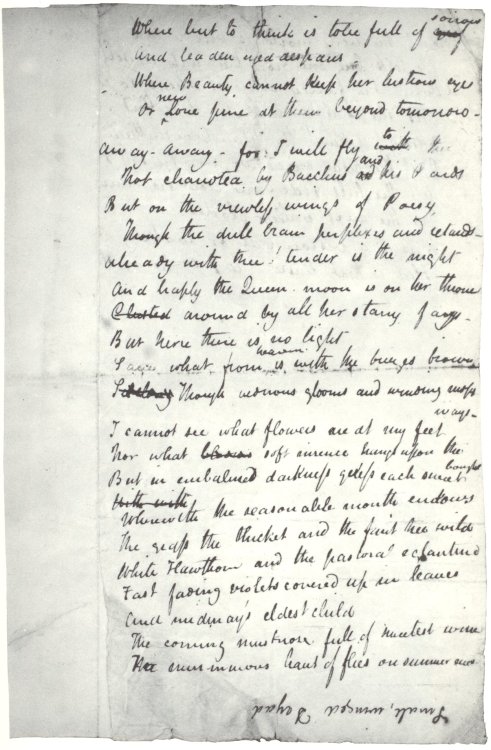 Where but to think is to be full of sorrow
and leaden eyed despairs -
Where Beauty cannot keep her lustrous eyes
Or new Love pine at them beyond tomorrow -
Away - away - for I will fly to thee
Not charioted by Bacchus and his Pards
But on the viewless wings of Poesy
Though the dull brain perplexes and retards -
Already with thee! tender is the night
And haply the Queen-moon is on her throne
Clusterd around by all her starry fays -
But here there is no light
Save what from heaven is with the breezes blown
Sidelong Through verdurous glooms and winding mossy
ways -
I cannot see what flowers are at my feet
Nor what blooms soft incense hangs upon the
boughs
But in embalmed darkness guess each sweet
With with
Wherewith the seasonable month endows
The grass the thicket and the fruit tree wild
White Hawthorn and the pastoral eglantine
Fast fading violets covered up in leaves
And midmay's eldest child
The coming muskrose full of sweetest wine
The murmurous haunt of flies on summer eves
Small, winged Dryad